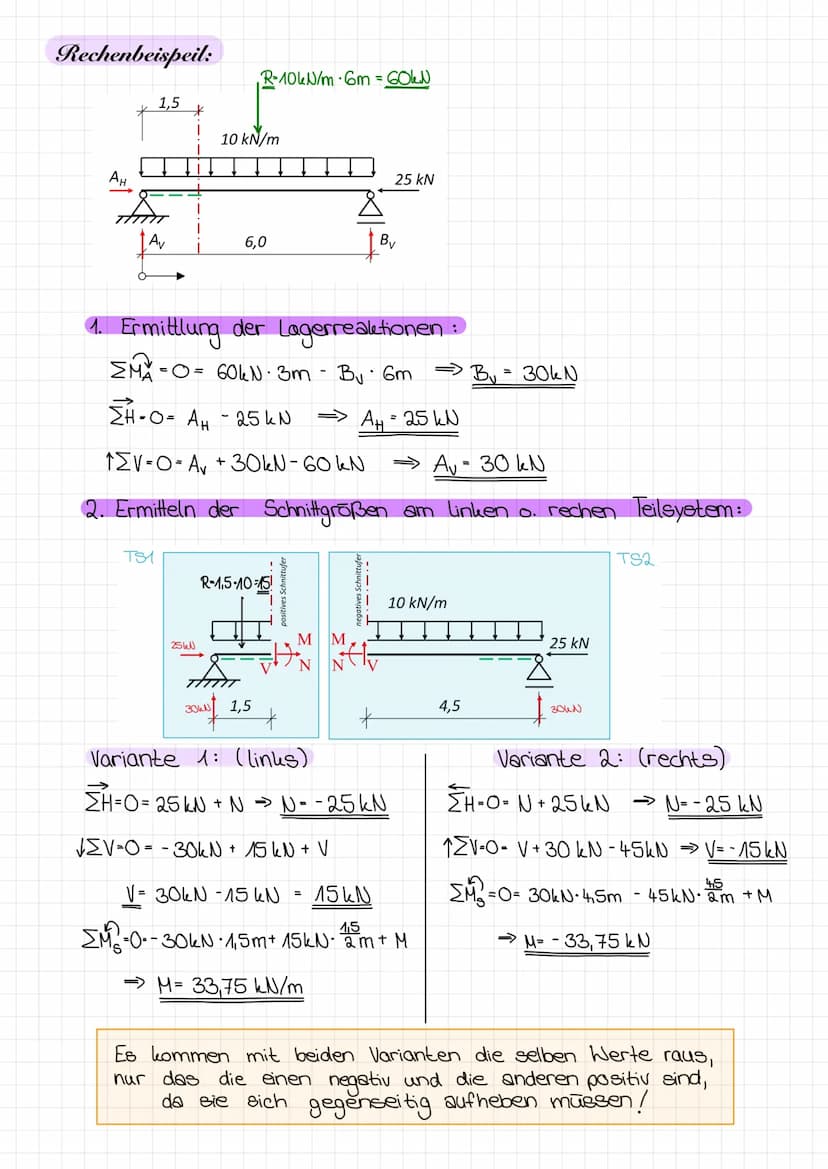 Rechenbeispeil:
R=10kN/m · 6m = 60kN
1,5
10 kN/m
A_H
25 kN
A_V
6,0
B_V
1. Ermittlung der Lagerreaktionen:
ΣM_A = 0 = 60kN · 3m - B_V · 6m ⟹ B_V = 30kN
ΣH = 0 = A_H - 25 kN ⟹ A_H = 25 kN
↑ΣV = 0 = A_V + 30kN - 60 kN ⟹ A_V = 30 kN
2. Ermitteln der Schnittgrößen am linken o. rechen Teilsystem:
TS1
TS2
R=1,5·10=15
positives Schnittufer
negatives Schnittufer
10 kN/m
25kN
M
V
N
M
N
V
25 kN
30kN
1,5
4,5
30kN
Variante 1: (links)
ΣH=0= 25 kN + N ⇒ N = -25 kN
↓ΣV=0 = -30kN + 15 kN + V
V = 30kN - 15 kN = 15 kN
ΣM_S=0=-30kN · 1,5m + 15kN · 1,5/2 m + M
⇒ M = 33,75 kN/m
Variante 2: (rechts)
ΣH=0= N + 25kN → N = -25 kN
↑ΣV=0= V + 30 kN - 45kN ⇒ V = -15 kN
ΣM_S=0= 30kN · 4,5m - 45kN · 4,5/2 m + M
⇒ M = -33,75 kN
Es kommen mit beiden Varianten die selben Werte raus,
nur das die einen negativ und die anderen positiv sind,
da sie sich gegenseitig aufheben müssen!